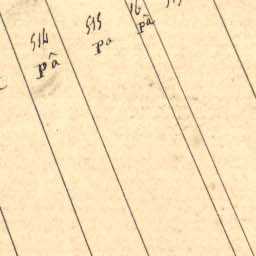 514
pâ
515
pa
pâ